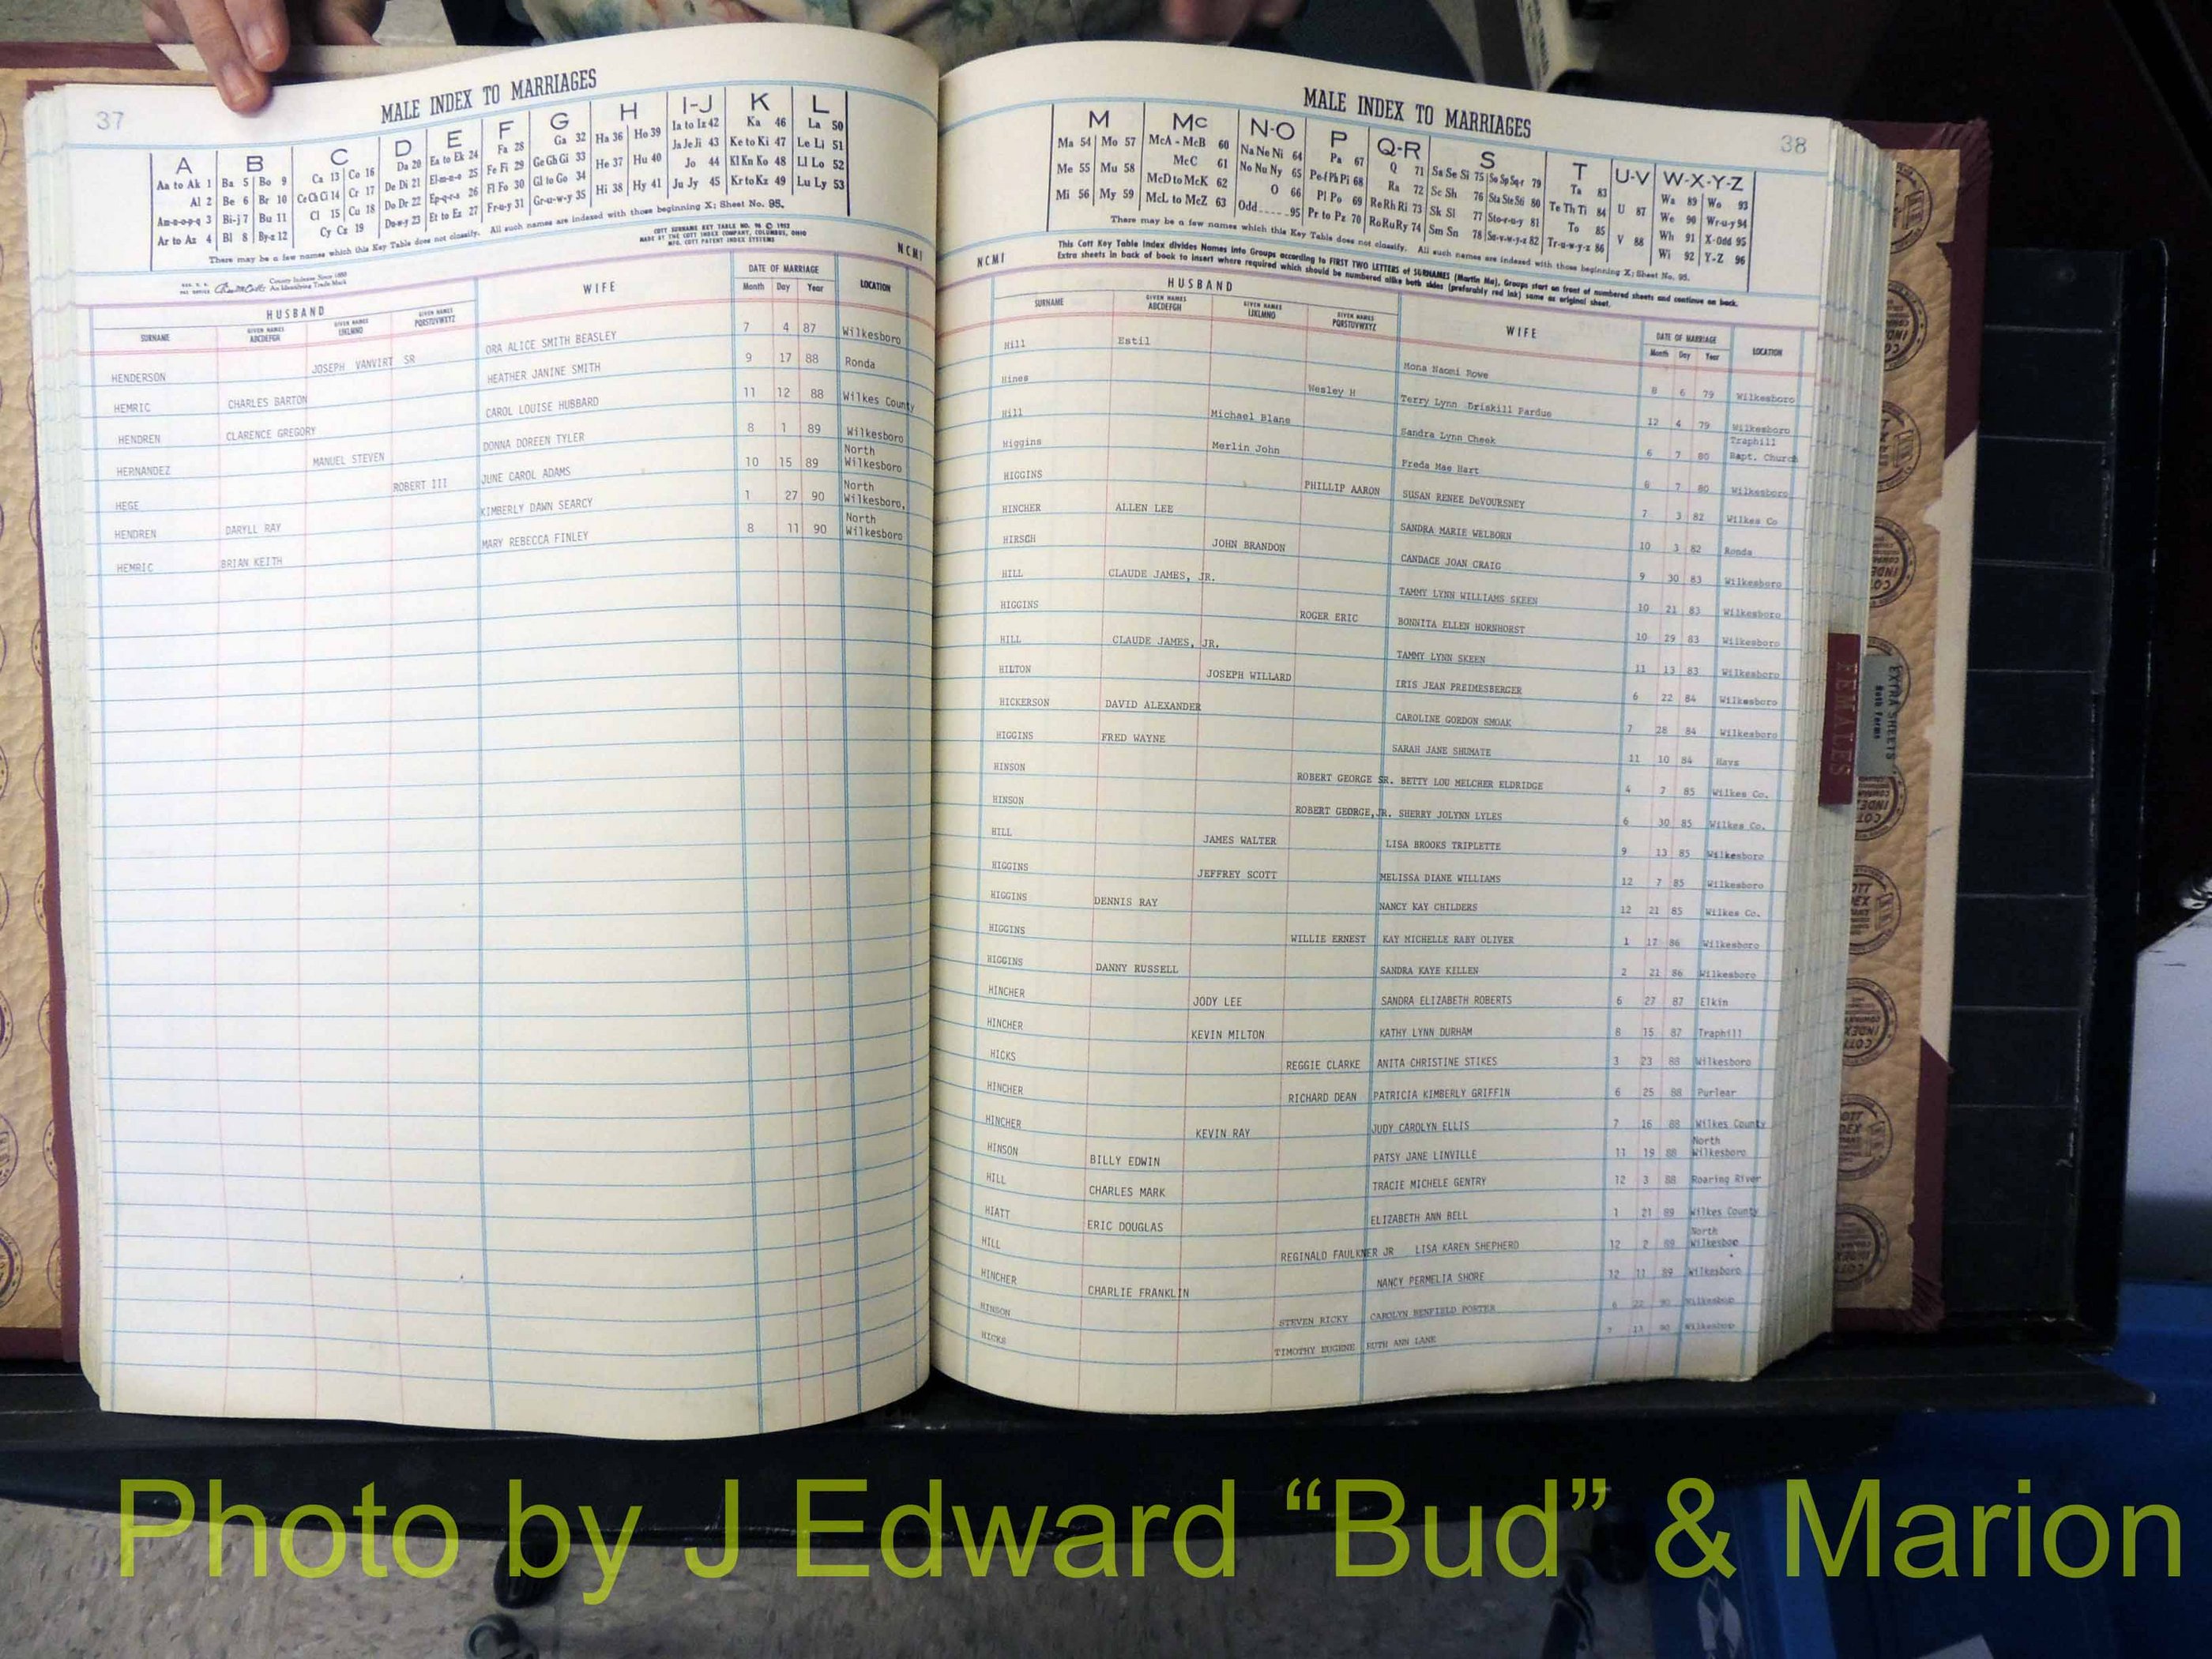 37
MALE INDEX TO MARRIAGES
A B C D E F G H I-J K L
Aa to Ak 1 Ba 5 Bo 9 Ca 13 Co 16 Da 20 Ea to Ek 24 Fa 28 Ga 32 Ha 36 Ho 39 Ia to Iz 42 Ka 46 La 50
Al 2 Be 6 Br 10 Ce Ch Ci 14 Cr 17 De Di 21 El-m-n-o 25 Fe Fi 29 Ge Gh Gi 33 He 37 Hu 40 Ja Je Ji 43 Ke to Ki 47 Le Li 51
Am-n-o-p-q 3 Bi-j 7 Bu 11 Cl 15 Cu 18 Do Dr 22 Ep-q-r-s 26 Fl Fo 30 Gl to Go 34 Hi 38 Hy 41 Jo 44 Kl Kn Ko 48 Ll Lo 52
Ar to Az 4 Bl 8 By-z 12 Cy Cz 19 Du-w-y 23 Et to Ez 27 Fr-u-y 31 Gr-u-w-y 35 Ju Jy 45 Kr to Kz 49 Lu Ly 53
There may be a few names which this Key Table does not classify. All such names are indexed with those beginning X; Sheet No. 95.
COTT SURNAME KEY TABLE NO. 96 © 1952
MADE BY THE COTT INDEX COMPANY, COLUMBUS, OHIO
MFG. COTT PATENT INDEX SYSTEMS
NCMI
County Indexes Since 1888
An Identifying Trade Mark
HUSBAND WIFE DATE OF MARRIAGE LOCATION
SURNAME GIVEN NAMES ABCDEFGH GIVEN NAMES IJKLMNO GIVEN NAMES PQRSTUVWXYZ Month Day Year
HENDERSON JOSEPH VANVIRT SR ORA ALICE SMITH BEASLEY 7 4 87 Wilkesboro
HEMRIC CHARLES BARTON HEATHER JANINE SMITH 9 17 88 Ronda
HENDREN CLARENCE GREGORY CAROL LOUISE HUBBARD 11 12 88 Wilkes County
HERNANDEZ MANUEL STEVEN DONNA DOREEN TYLER 8 1 89 Wilkesboro
HEGE ROBERT III JUNE CAROL ADAMS 10 15 89 North Wilkesboro
HENDREN DARYLL RAY KIMBERLY DAWN SEARCY 1 27 90 North Wilkesboro,
HEMRIC BRIAN KEITH MARY REBECCA FINLEY 8 11 90 North Wilkesboro
38
MALE INDEX TO MARRIAGES
M Mc N-O P Q-R S T U-V W-X-Y-Z
Ma 54 Mo 57 McA - McB 60 Na Ne Ni 64 Pa 67 Q 71 Sa Se Si 75 So Sp Sq-r 79 Ta 83 U 87 Wa 89 Wo 93
Me 55 Mu 58 McC 61 No Nu Ny 65 Pe-f Ph Pi 68 Ra 72 Sc Sh 76 Sta Ste Sti 80 Te Th Ti 84 V 88 We 90 Wr-u-y 94
Mi 56 My 59 McD to McK 62 O 66 Pl Po 69 Re Rh Ri 73 Sk Sl 77 Sto-r-u-y 81 To 85 Wh 91 X-Odd 95
McL to McZ 63 Odd 95 Pr to Pz 70 Ro Ru Ry 74 Sm Sn 78 Su-v-w-y-z 82 Tr-u-w-y-z 86 Wi 92 Y-Z 96
There may be a few names which this Key Table does not classify. All such names are indexed with those beginning X; Sheet No. 95.
This Cott Key Table Index divides Names into Groups according to FIRST TWO LETTERS of SURNAMES (Martin Ma), Groups start on front of numbered sheets and continue on back.
Extra sheets in back of book to insert where required which should be numbered alike both sides (preferably red ink) same as original sheet.
NCMI
HUSBAND WIFE DATE OF MARRIAGE LOCATION
SURNAME GIVEN NAMES ABCDEFGH GIVEN NAMES IJKLMNO GIVEN NAMES PQRSTUVWXYZ Month Day Year
Hill Estil Mona Naomi Rowe 8 6 79 Wilkesboro
Hines Wesley H Terry Lynn Driskill Pardue 12 4 79 Wilkesboro
Hill Michael Blane Sandra Lynn Cheek 6 7 80 Traphill Bapt. Church
Higgins Merlin John Freda Mae Hart 6 7 80 Wilkesboro
HIGGINS PHILLIP AARON SUSAN RENEE DeVOURSNEY 7 3 82 Wilkes Co
HINCHER ALLEN LEE SANDRA MARIE WELBORN 10 3 82 Ronda
HIRSCH JOHN BRANDON CANDACE JOAN CRAIG 9 30 83 Wilkesboro
HILL CLAUDE JAMES, JR. TAMMY LYNN WILLIAMS SKEEN 10 21 83 Wilkesboro
HIGGINS ROGER ERIC BONNITA ELLEN HORNHORST 10 29 83 Wilkesboro
HILL CLAUDE JAMES, JR. TAMMY LYNN SKEEN 11 13 83 Wilkesboro
HILTON JOSEPH WILLARD IRIS JEAN PREIMESBERGER 6 22 84 Wilkesboro
HICKERSON DAVID ALEXANDER CAROLINE GORDON SMOAK 7 28 84 Wilkesboro
HIGGINS FRED WAYNE SARAH JANE SHUMATE 11 10 84 Hays
HINSON ROBERT GEORGE SR. BETTY LOU MELCHER ELDRIDGE 4 7 85 Wilkes Co.
HINSON ROBERT GEORGE, JR. SHERRY JOLYNN LYLES 6 30 85 Wilkes Co.
HILL JAMES WALTER LISA BROOKS TRIPLETTE 9 13 85 Wilkesboro
HIGGINS JEFFREY SCOTT MELISSA DIANE WILLIAMS 12 7 85 Wilkesboro
HIGGINS DENNIS RAY NANCY KAY CHILDERS 12 21 85 Wilkes Co.
HIGGINS WILLIE ERNEST KAY MICHELLE RABY OLIVER 1 17 86 Wilkesboro
HIGGINS DANNY RUSSELL SANDRA KAYE KILLEN 2 21 86 Wilkesboro
HINCHER JODY LEE SANDRA ELIZABETH ROBERTS 6 27 87 Elkin
HINCHER KEVIN MILTON KATHY LYNN DURHAM 8 15 87 Traphill
HICKS REGGIE CLARKE ANITA CHRISTINE STIKES 3 23 88 Wilkesboro
HINCHER RICHARD DEAN PATRICIA KIMBERLY GRIFFIN 6 25 88 Purlear
HINCHER KEVIN RAY JUDY CAROLYN ELLIS 7 16 88 Wilkes County
HINSON BILLY EDWIN PATSY JANE LINVILLE 11 19 88 North Wilkesboro
HILL CHARLES MARK TRACIE MICHELE GENTRY 12 3 88 Roaring River
HIATT ERIC DOUGLAS ELIZABETH ANN BELL 1 21 89 Wilkes County
HILL REGINALD FAULKNER JR LISA KAREN SHEPHERD 12 2 89 North Wilkesboo
HINCHER CHARLIE FRANKLIN NANCY PERMELIA SHORE 12 11 89 Wilkesboro
HINSON STEVEN RICKY CAROLYN BENFIELD PORTER 6 22 90
HICKS TIMOTHY EUGENE RUTH ANN LANE 7 13 90
FEMALES
EXTRA SHEETS
Photo by J Edward “Bud” & Marion